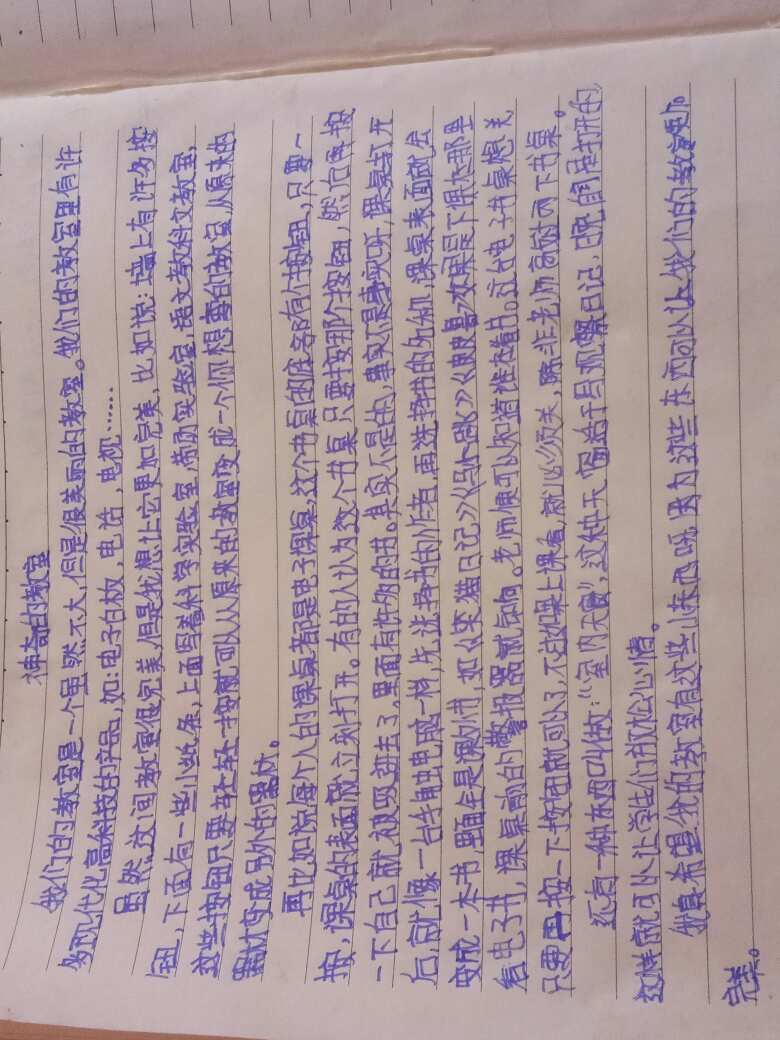 神奇的教室
我们的教室是一个虽然不大，但是很美丽的教室。我们的教室里有许
多现代化高科技的产品，如：电子白板，电话，电视……
虽然这间教室很完美，但是我想让它更加完美，比如说：墙上有许多按
钮，下面有一些小纸条，上面写着科学实验室，劳动实验室，语文教科文教室，
这些按钮只要轻轻一按就可以从原来的教室变成一个你想要的教室，从原来的
器材变成另外的器材。
再比如说每个人的课桌都是电子课桌，这个书桌的底旁有个按钮，只要一
按，课桌的表面就立刻打开。有的人认为这个书桌只要按那个按钮，然后再按
一下自己就被吸进去了，里面有许多的书。其实不是的，事实是事实呀课桌打开
后，就像一台牛角虫电成一样，先选择书的作者，再选择书的外和，课桌表面就会
变成一本书，里面全是漫小书，如《笑猫日记》《马小跳》《 》如果是下课在那里
看电子书，课桌前的警报器就会响。老师便可以知道谁在看书。这台电子书桌想关
只要再按一下按钮就可以了，不过如果上课看，就必须关，除非老师同意时西下书桌。
还有一种东西叫做：“室内天窗”，这种天窗适于写观察日记，因它自写打开的
这样就可以让学生们放松心情。
我真希望我的教室有这些小东西呀，因为这些东西可以让我们的教室更加
完美。